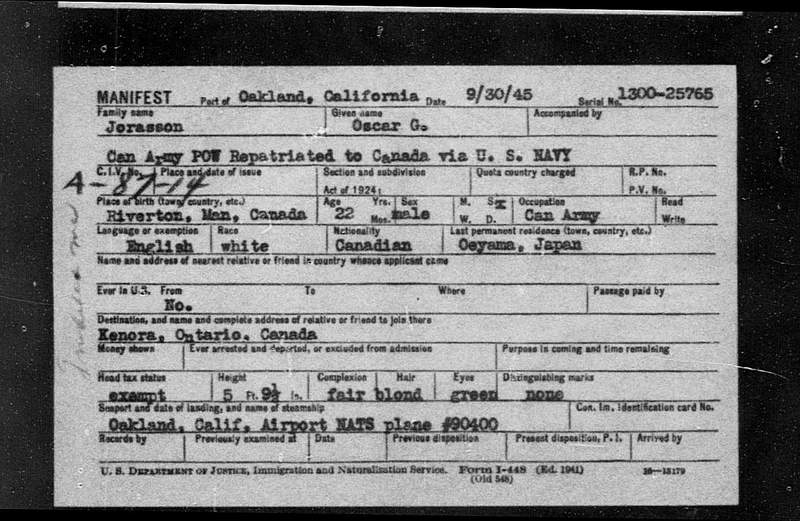 MANIFEST Port of Oakland, California Date 9/30/45 Serial No. 1300-25765
Family name Given name Accompanied by
Jorasson Oscar G.
Can Army POW Repatriated to Canada via U. S. NAVY
C.I.V. No. Place and date of issue Section and subdivision Quota country charged R.P. No.
A-87-14 Act of 1924: P.V. No.
Place of birth (town, country, etc.) Age Yrs. Sex M. S. X Occupation Read
Riverton, Man, Canada 22 Mos. male W. D. Can Army Write
Language or exemption Race Nationality Last permanent residence (town, country, etc.)
English white Canadian Oeyama, Japan
Name and address of nearest relative or friend in country whence applicant came
Ever in U.S. From To Where Passage paid by
No.
Destination, and name and complete address of relative or friend to join there
Kenora, Ontario. Canada
Money shown Ever arrested and deported, or excluded from admission Purpose in coming and time remaining
Head tax status Height Complexion Hair Eyes Distinguishing marks
exempt 5 Ft. 9½ In. fair blond green none
Seaport and date of landing, and name of steamship Con. Im. Identification card No.
Oakland, Calif, Airport NATS plane #90400
Records by Previously examined at Date Previous disposition Present disposition, P. I. Arrived by
U. S. DEPARTMENT OF JUSTICE, Immigration and Naturalization Service. Form I-448 (Ed. 1941) 16—13179
(Old 548)